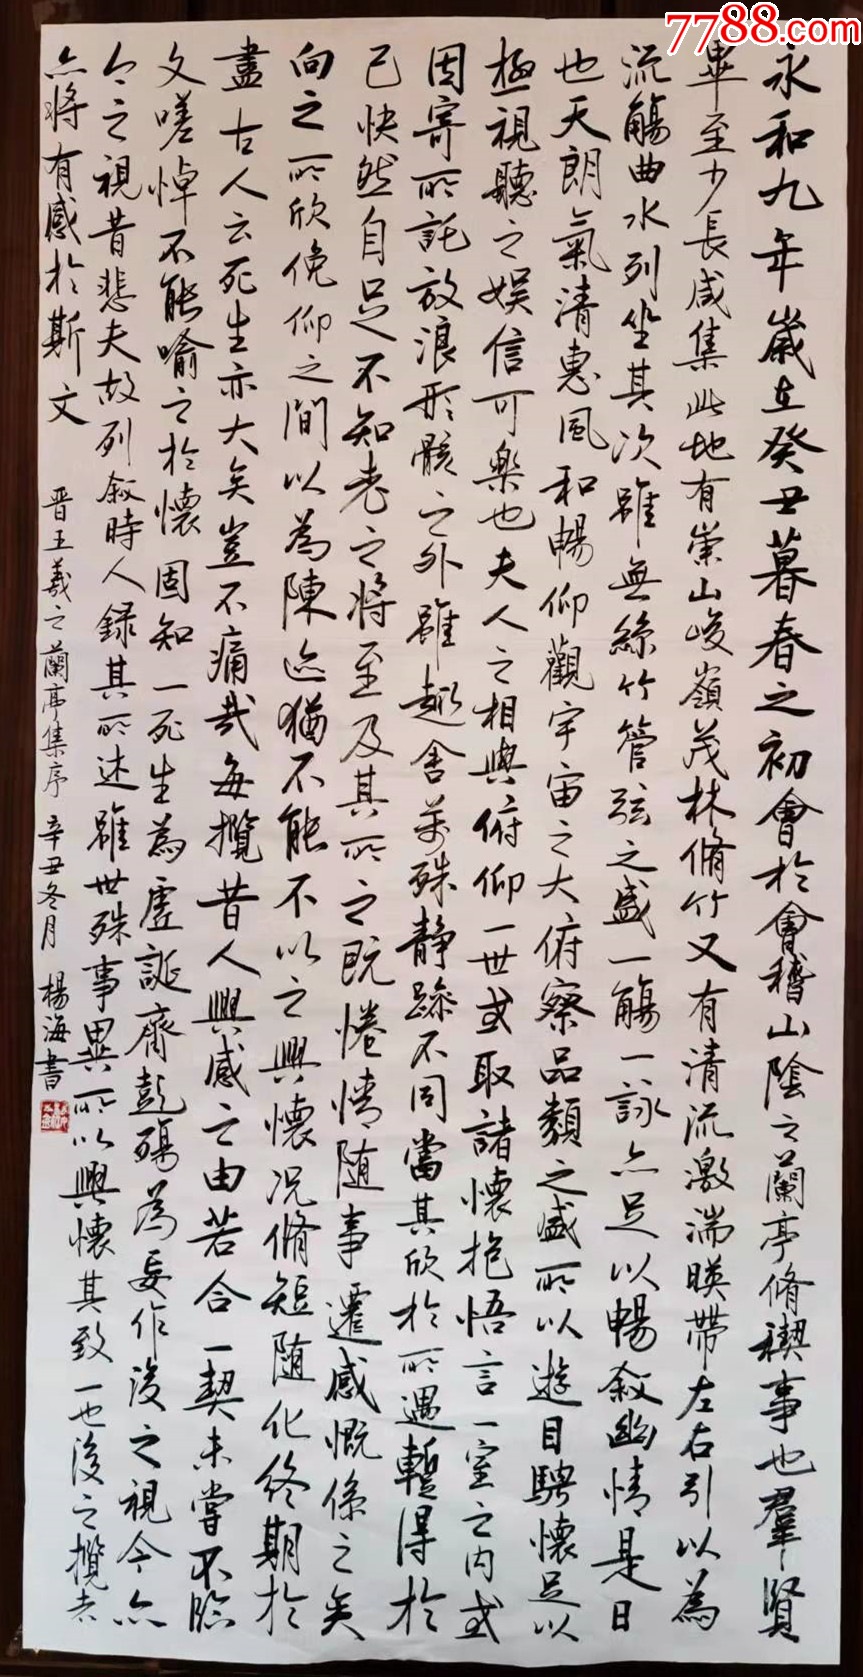 7788.com
永和九年歲在癸丑暮春之初會於會稽山陰之蘭亭脩禊事也羣賢
畢至少長咸集此地有崇山峻嶺茂林脩竹又有清流激湍暎帶左右引以為
流觴曲水列坐其次雖無絲竹管弦之盛一觴一詠亦足以暢叙幽情是日
也天朗氣清惠風和暢仰觀宇宙之大俯察品類之盛所以遊目騁懷足以
極視聽之娛信可樂也夫人之相與俯仰一世或取諸懷抱悟言一室之内或
因寄所託放浪形骸之外雖趣舍萬殊静躁不同當其欣於所遇暫得於
己快然自足不知老之將至及其所之既惓情随事遷感慨係之矣
向之所欣俛仰之間以為陳迹猶不能不以之興懷况脩短随化終期於
盡古人云死生亦大矣豈不痛哉每攬昔人興感之由若合一契未嘗不臨
文嗟悼不能喻之於懷固知一死生為虛誕齊彭殤為妄作後之視今亦
今之視昔悲夫故列叙時人録其所述雖世殊事異所以興懷其致一也後之攬者
亦將有感於斯文
晋王羲之蘭亭集序 辛丑冬月 楊海書